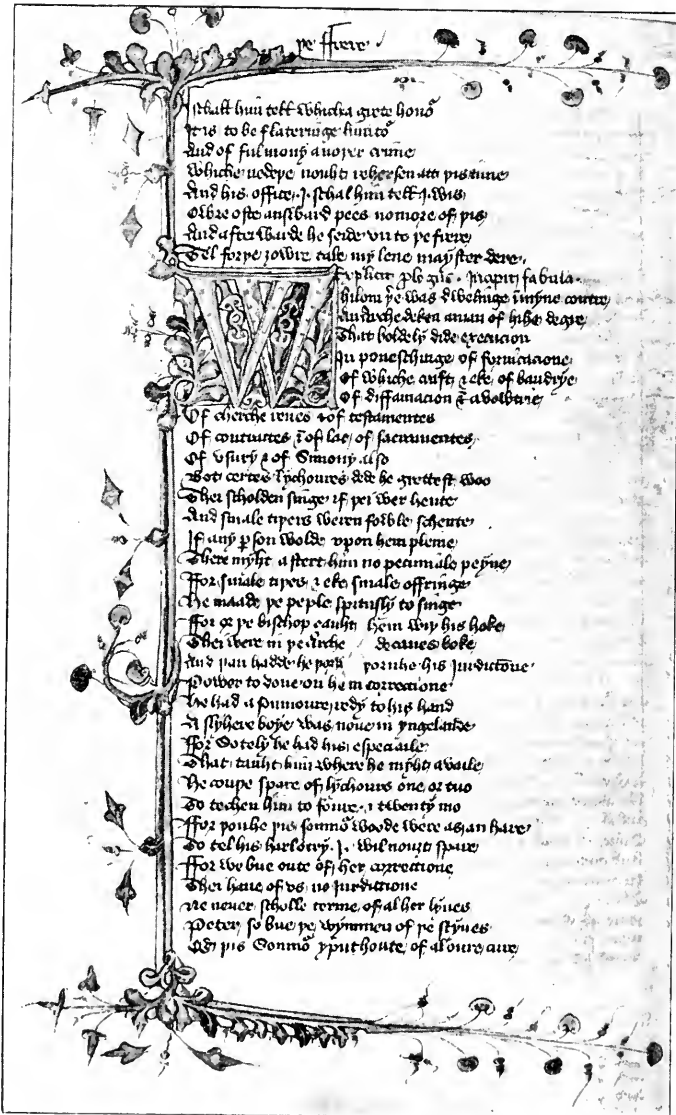 þe ffrere
I schall him tell whicha grete hono
It is to be flateringe limito
And of ful mony anoþer crime
Whiche nedeþe nouht rehersen att þis time
And his office I schal him tell I wis
Oure oste answard pees nomore of þis
And afterwarde he seide vn to þe frere
Tel forþe ȝowre tale my leue mayster dere
Explicit prologus Incipit fabula
Whilom þer was dwellinge in myne contre
An erchedeken a man of hihe degre
That boldely dide execucion
In poneschinge of fornicacione
Of whiche craft & eke of baudrye
Of diffamacion & avowtrie
Of cherche reues & of testamentes
Of contractes & of lac of sacramentes
Of vsury & of Simony also
Bot certes lychoures dede he grettest woo
Thei scholden singe if þei wer hente
And smale tiþers weren fowle schente
If any person wolde vpon hem pleine
There myht astert him no pecuniale peyne
Ffor smale tiþes & eke smale offringe
He maade þe peple spitusly to singe
Ffor er þe bischop cauht hem wiþ his hoke
Thei were in þe erche decanes boke
And þan hadde he þorw þoruhe his iurdictione
Power to done on hem correctione
He had a sumoure redy to his hand
A slyhere boye was none in yngelande
Ffor sotely he had his especiaile
That tauht him where he myht availe
He couþe spare of lychours one or tuo
To techen him to foure & twenty mo
Ffor þouhe þis somno woode were as an hare
To tel his harlotry I wil nouht spare
Ffor we bue oute of her correctione
Thei haue of vs no iurdictione
Ne neuer scholle terme of al her lyues
Peter so bue þe wymmen of þe styues
Qd þis Somno yput houte of al oure cure